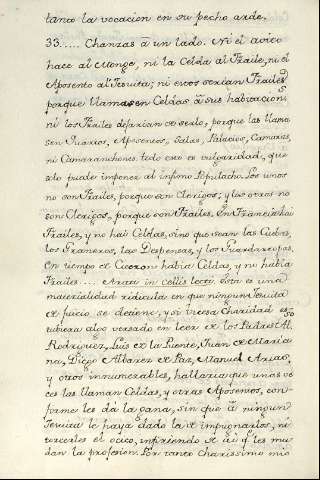 tanto la vocacion en su pecho arde.
33..... Chanzas à un lado. Ni el avito
hace al Monge, ni la Celda al Fraile, ni el
Aposento al Jesuita; ni estos serian Frailes
porque llamasen Celdas à sus habitacions
ni los Frailes dejarian de serlo, porque las llama
sen Quartos, Aposentos, Salas, Palacios, Camaras,
ni Camaranchones. todo esto es vulgaridad, que
solo puede imponer al infimo Populacho. Los unos
no son Frailes, porque son Clerigos; y los otros no
son Clerigos, porque son Frailes. En Francia hai
Frailes, y no hai Celdas, sino que sean las Cuebas,
los Graneros, las Despensas, y los Guardarropas.
En tiempo de Ciceron habia Celdas, y no habia
Frailes .... Esta es una
materialidad ridicula en que ningun Jesuita
de juicio se detiene, y si vuesa Charidad es-
tubiera algo versado en leer de los Padres Al.
Rodriguez, Luis de la Puente, Juan de Maria
na, Diego Albarez de Paz, Manuel Arias,
y otros innumerables, hallaria que unas ve
ces las llaman Celdas, y otras Aposentos, con-
forme les dà la gana, sin que à ningun
Jesuita le haya dado la de impugnarlos, ni
torcerles el ocico, infiriendo de aì q. les mu-
dan la profesion. Por tanto charissimo mio